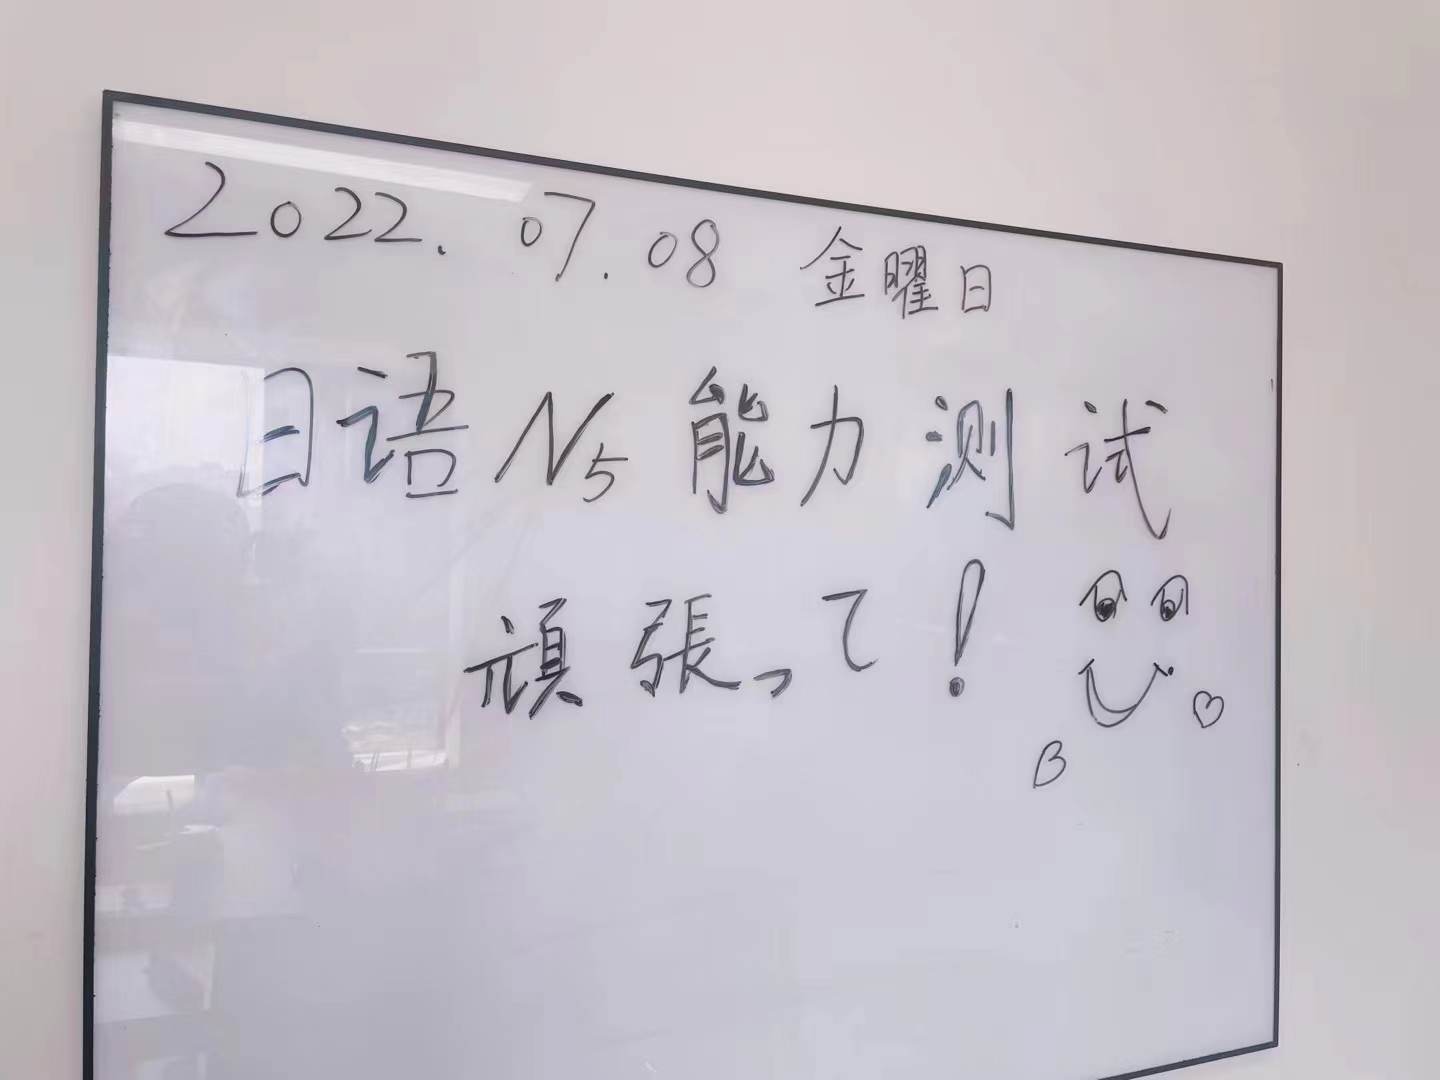 2022.07.08 金曜日
日语N5能力测试
頑張って!